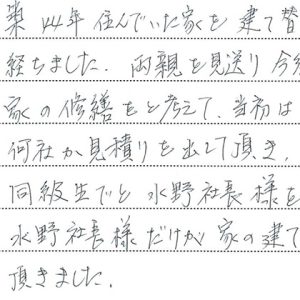 築44年住んでいた家を建て替
経ちました。両親を見送り今
家の修繕をと考えて、当初は
何社か見積りを出して頂き、
同級生でと水野社長様を
水野社長様だけが家の建て
頂きました。